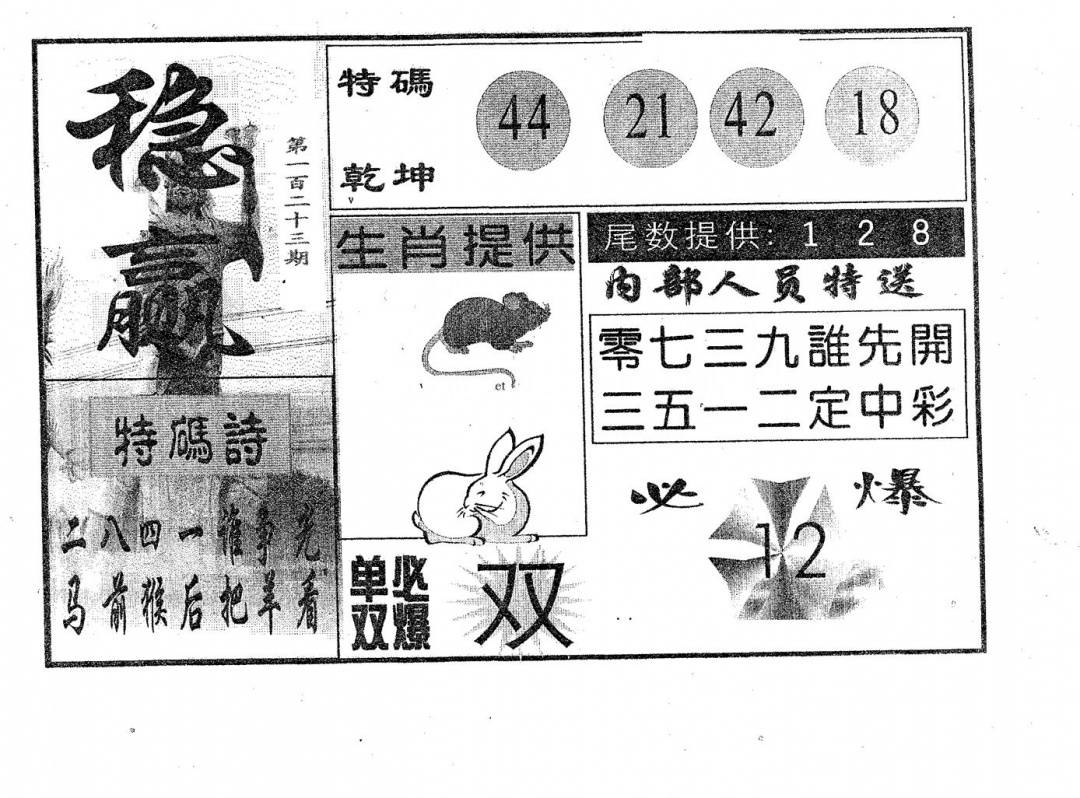 稳赢
第一百二十三期
特碼
乾坤
44 21 42 18
生肖提供
et
尾数提供: 1 2 8
内部人员特送
零七三九誰先開
三五一二定中彩
特碼詩
二八四一谁争先
马前猴后把羊看
单双必爆
双
必爆
12